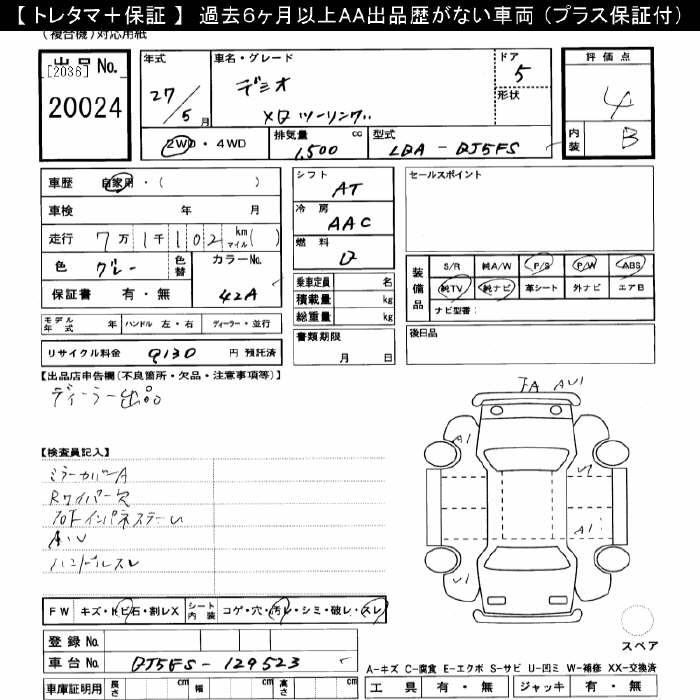 【 トレタマ＋保証 】 過去6ヶ月以上AA出品歴がない車両 (プラス保証付)
(複合機)対応用紙
出品 No.
[2036]
20024
年式
27/5月
車名・グレード
デミオ
XD ツーリング
ドア
5
形状
評価点
4
内装
B
2WD ・ 4WD
排気量
1,500 cc
型式
LDA - DJ5FS
車歴 自家用 ・( )
車検 年 月
走行 7万1千102 km マイル( )
色 グレー
色替
カラーNo.
42A
保証書 有 ・ 無
モデル年式 年 ハンドル 左・右 ディーラー・並行
リサイクル料金 9130 円 預託済
シフト
AT
冷房
AAC
燃料
D
乗車定員 名
積載量 kg
総重量 kg
書類期限
月 日
セールスポイント
装備品
S/R 純A/W P/S P/W ABS
純TV 純ナビ 革シート 外ナビ エアB
ナビ型番：
後日品
【出品店申告欄(不良箇所・欠品・注意事項等)】
ディーラー出品
【検査員記入】
ミラーカバーA
Rワイパー欠
ハンドルスレ
FW キズ・トビ石・割レX
シート内装 コゲ・穴・汚レ・シミ・破レ・スレ
FA AU1
A1
A1
登録 No.
車台 No. DJ5FS - 129523
車庫証明用 長さ cm 幅 cm 高さ cm
スペア
A-キズ C-腐食 E-エクボ S-サビ U-凹ミ W-補修 XX-交換済
工具 有・無 ジャッキ 有・無